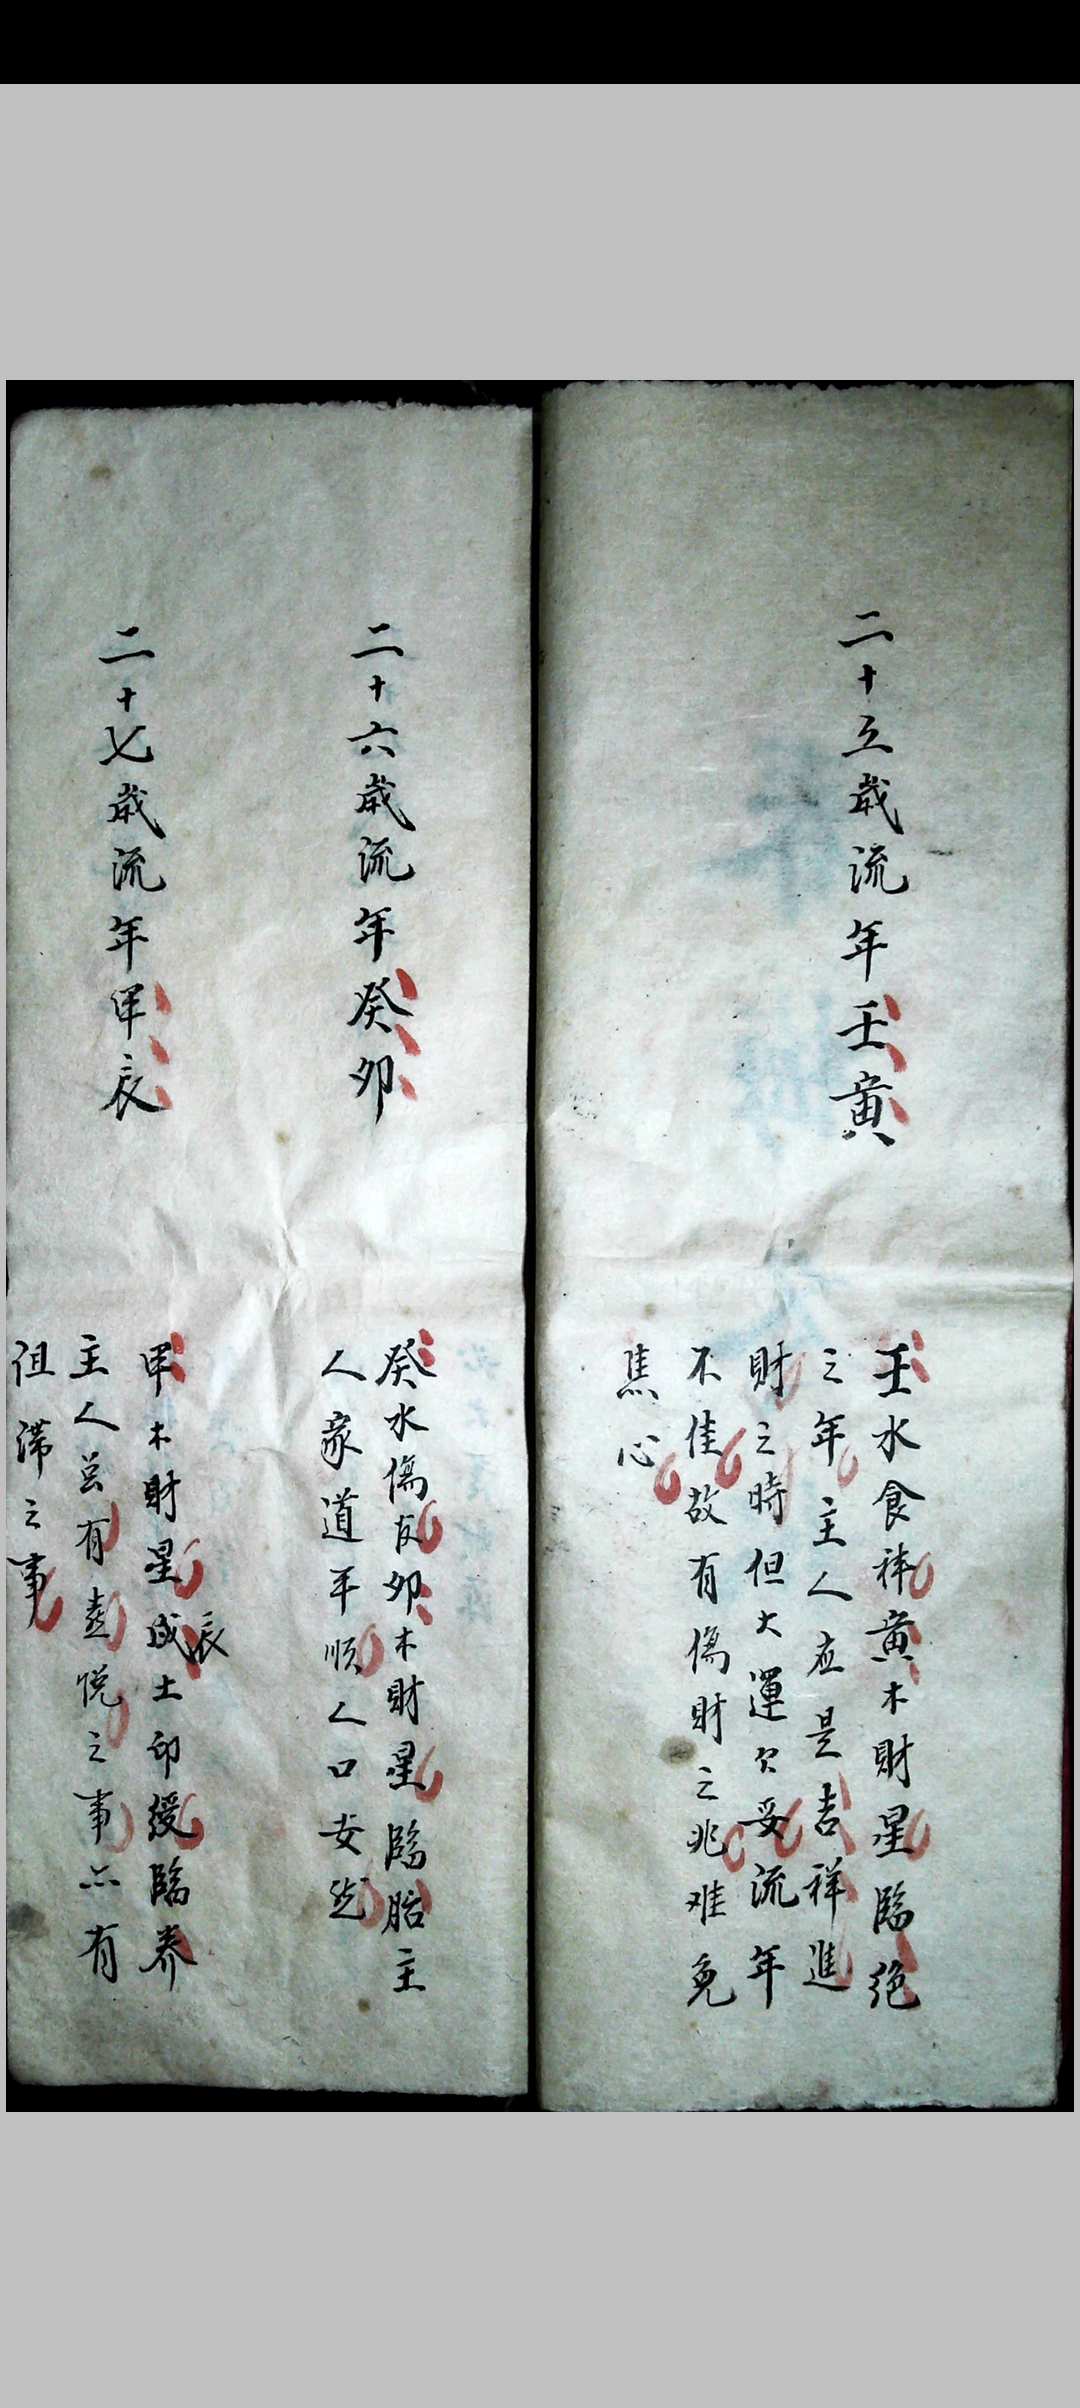 二十五歳流年壬寅
壬水食神寅木財星臨绝
之年主人应是吉祥進
財之時但大運欠妥流年
不佳故有傷財之兆难免
焦心
二十六歳流年癸卯
癸水傷官卯木財星臨胎主
人家道平顺人口安然
二十七歳流年甲辰
甲木財星戌土印绶臨养
辰
主人总有喜悦之事亦有
阻滞之事